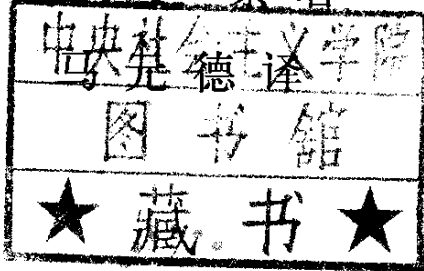 中央社会主义学院
马元德译
图书馆
★藏书★